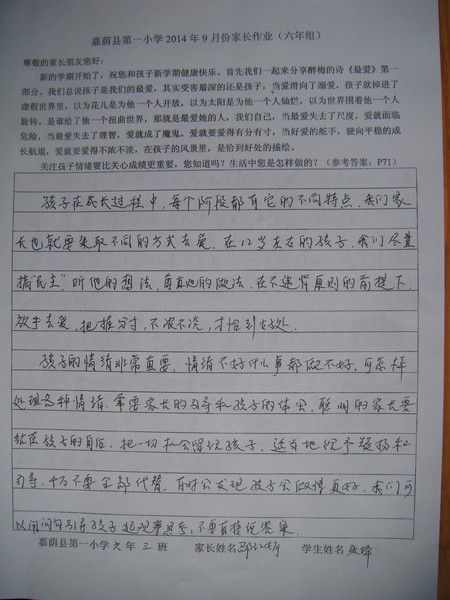 嘉荫县第一小学2014年9月份家长作业（六年组）
尊敬的家长朋友您好：
新的学期开始了，祝您和孩子新学期健康快乐。首先我们一起来分享醉梅的诗《最爱》第一
部分。我们总说孩子是我们的最爱，其实受害最深的还是孩子，当爱滑向了溺爱，孩子就掉进了
虚假世界里，以为花儿是为他一个人开放，以为太阳是为他一个人灿烂，以为世界围着他一个人
旋转。是谁给了他一个扭曲世界，那就是最爱她的人，我们自己，当最爱失去了尺度，爱就面临
危险，当最爱失去了理智，爱就成了魔鬼。爱就要爱得有分有寸，当好爱的舵手，驶向平稳的成
长航道，爱就要爱得不浓不淡，在孩子的风景里，是恰到好处的描绘。
关注孩子情绪要比关心成绩更重要，您知道吗？生活中您是怎样做的？（参考答案：P71）
孩子在成长过程中，每个阶段都有它的不同特点，我们家
长也就要采取不同的方式去爱。在12岁左右的孩子，我们尽量
搞"民主"，听他的想法，看他的做法，在不违背原则的前提下，
放手去爱，把握分寸，不浓不淡，才恰到好处。
孩子的情绪非常重要，情绪不好什么事都做不好，可怎样
处理各种情绪，需要家长的引导和孩子的体会，聪明的家长要
站在孩子的身后，把一切机会留给孩子，适当地给予表扬和
引导，千万不要全部代替，有时会发现孩子会做得更好，我们可
以用问句引导孩子起观察思考，不要直接给答案。
嘉荫县第一小学六年三班 家长姓名 学生姓名